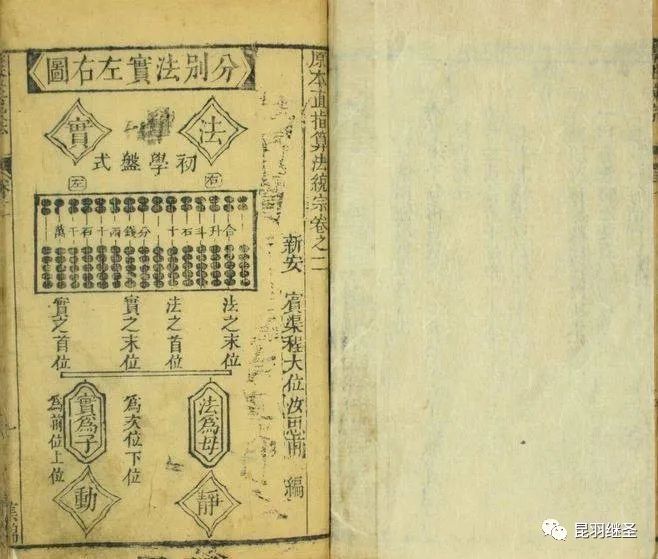 原本直指算法統宗卷之二
新安 賓渠程大位汝思甫 編
分別法實左右圖
法 實
初學盤式
右 左
合升斗石十分錢兩十百千萬
法之末位
法之首位
實之末位
實之首位
法為母
為次位下位
實為子
為前位上位
靜 動
昆羽继圣